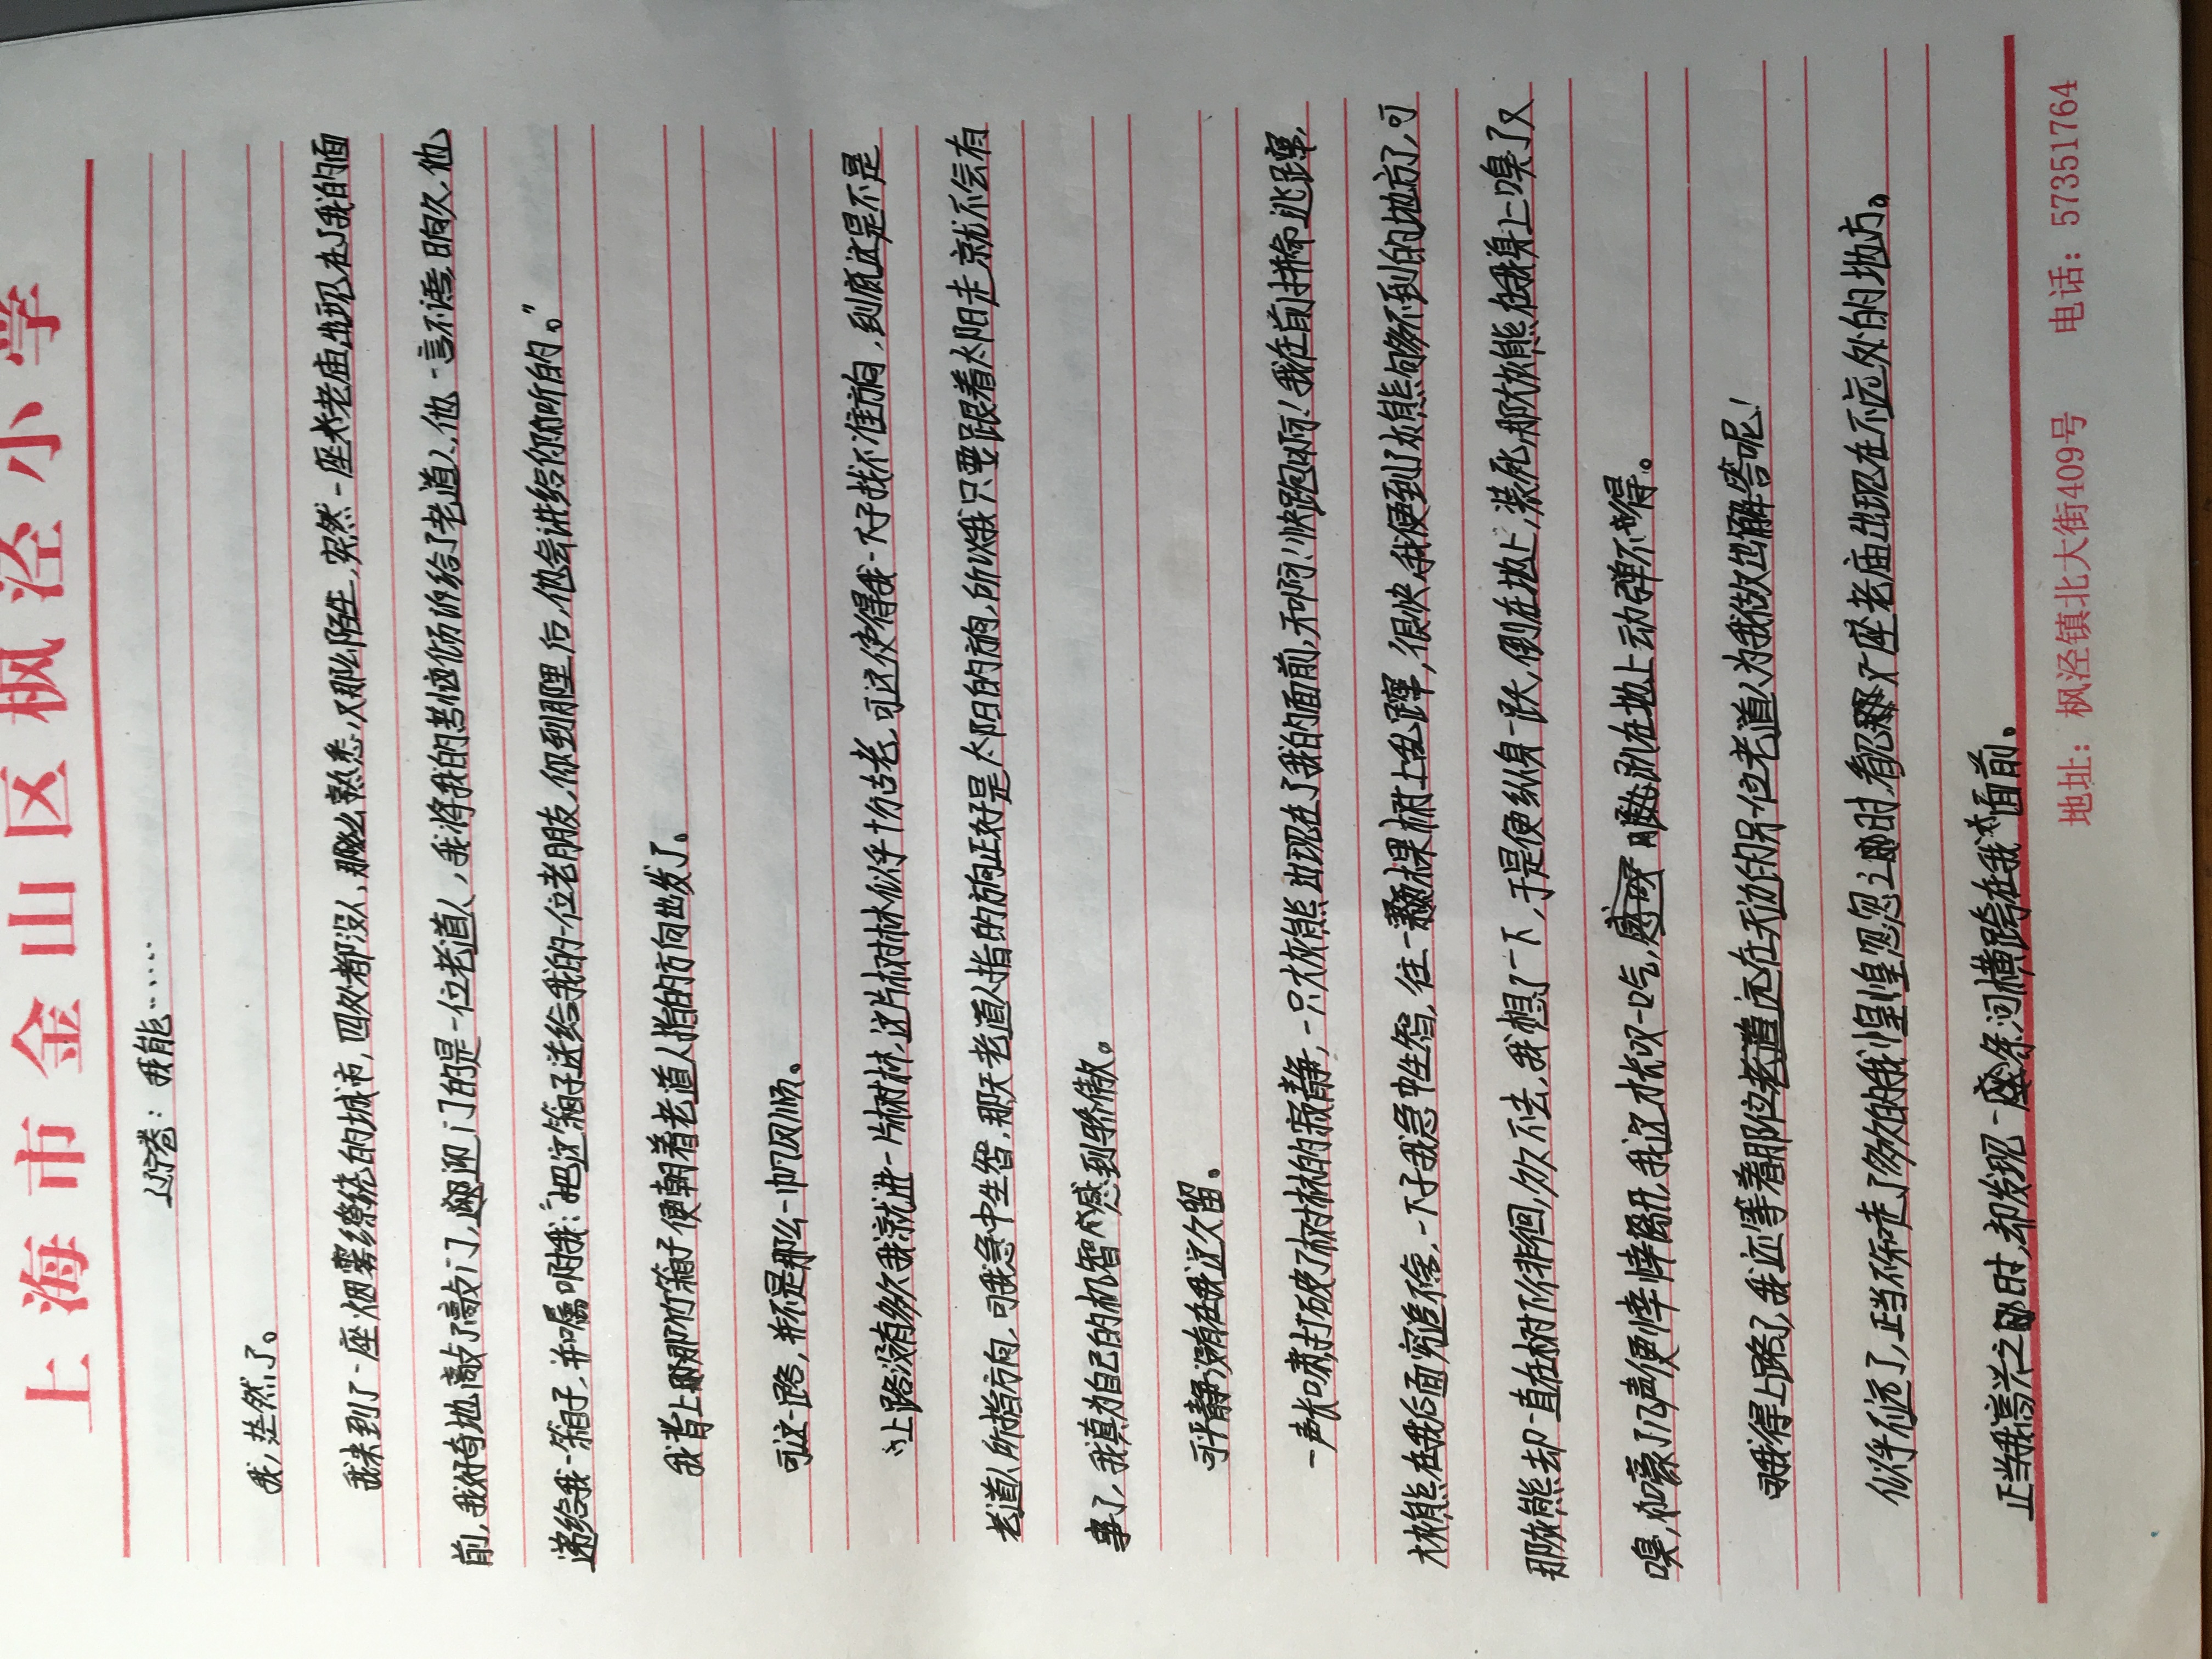 上海市金山区枫泾小学
过了卷：我能……
我，茫然了。
我来到了一座烟雾缭绕的城市，四处都没人，那么熟悉，又那么陌生，突然一座老庙出现在了我的面
前，我好奇地敲了敲门，迎门的是一位老道人，我将我的苦恼倾诉给了老道人，他一言不语，日晌久，他
递给我一箱子，并嘱咐我：“把这箱子送给我的一位老朋友，你到那里后，他会讲给你听的。”
我背上那竹箱子便朝着老道人指的方向出发了。
可这一路，并不是那么一帆风顺。
上路没有多久我就进一片树林，这片树林似乎十分古老，可这使得我一下子找不准方向，到底这是不是
老道人所指方向，可我急中生智，那天老道人指的方向正好是太阳的方向，所以我只要跟着太阳走就不会有
事了，我真为自己的机智感到骄傲。
可平静没有在我这久留。
一声长啸打破了树林的寂静，一只灰熊出现在了我的面前，天啊！快跑啊！我在前拼命逃蹿，
灰熊在我后面穷追不舍，一下子我急中生智，往一颗果树上乱蹿，很快，我便到了灰熊够不到的地方了，可
那灰熊却一直在树下徘徊，久久不去，我想了一下，于是便纵身一跃，倒在地上，装死，那灰熊在我身上嗅了又
嗅，和嚎了几声便悻悻离开，我这才长叹一口气，趴在地上动弹不得。
我得上路了，我还等着那位远在天边的另一位老道人为我做出解答呢！
似乎不远了，正当不知走了多久的我惶惶忽忽时，看见又一座老庙出现在不远处的地方。
正当我高兴之时，却发现一条河横跨在我面前。
地址：枫泾镇北大街409号 电话：57351764